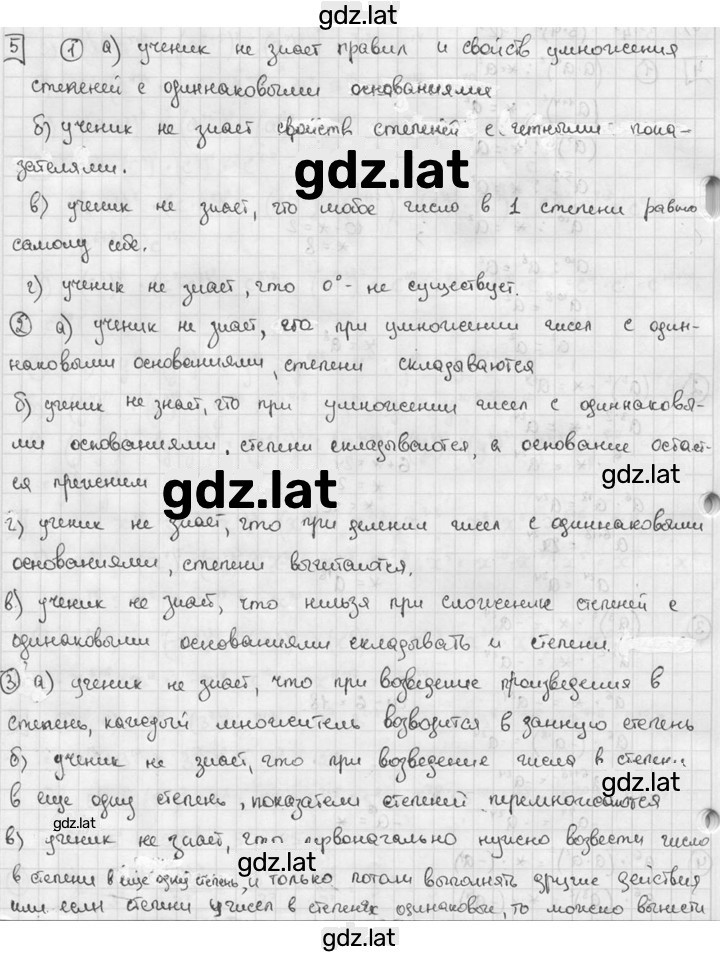 gdz.lat
5 ① а) ученик не знает правил и свойств умножения
степеней с одиннаковыми основаниями
б) ученик не знает свойств степеней с четными пока-
зателями.
gdz.lat
в) ученик не знает, что любое число в 1 степени равно
самому себе.
г) ученик не знает, что 0° - не существует.
② а) ученик не знает, что при умножении чисел с один-
наковыми основаниями, степени складаваются
б) ученик не знает, что при умножении чисел с одиннаковы-
ми основаниями, степени складываются, а основание остает-
ся
gdz.lat
gdz.lat
г) ученик не знает, что при делении чисел с одиннаковыми
основаниями, степени вычитаются.
в) ученик не знает, что нильзя при сложение степеней с
одинаковыми основаниями складывать и степени.
③ а) ученик не знает, что при возведение произведения в
степень, каждый множитель возводится в данную степень
б) ученик не знает, что при возведение числа в степень
gdz.lat
в еще одну степень, показатели степеней перемножаются
gdz.lat
в) ученик не знает, что первоначально нужно возвести число
gdz.lat
в степени в еще одну степень, и только потом выполнять другие действия
или если степени у чисел в степенях одинаковые, то можно вынести
gdz.lat